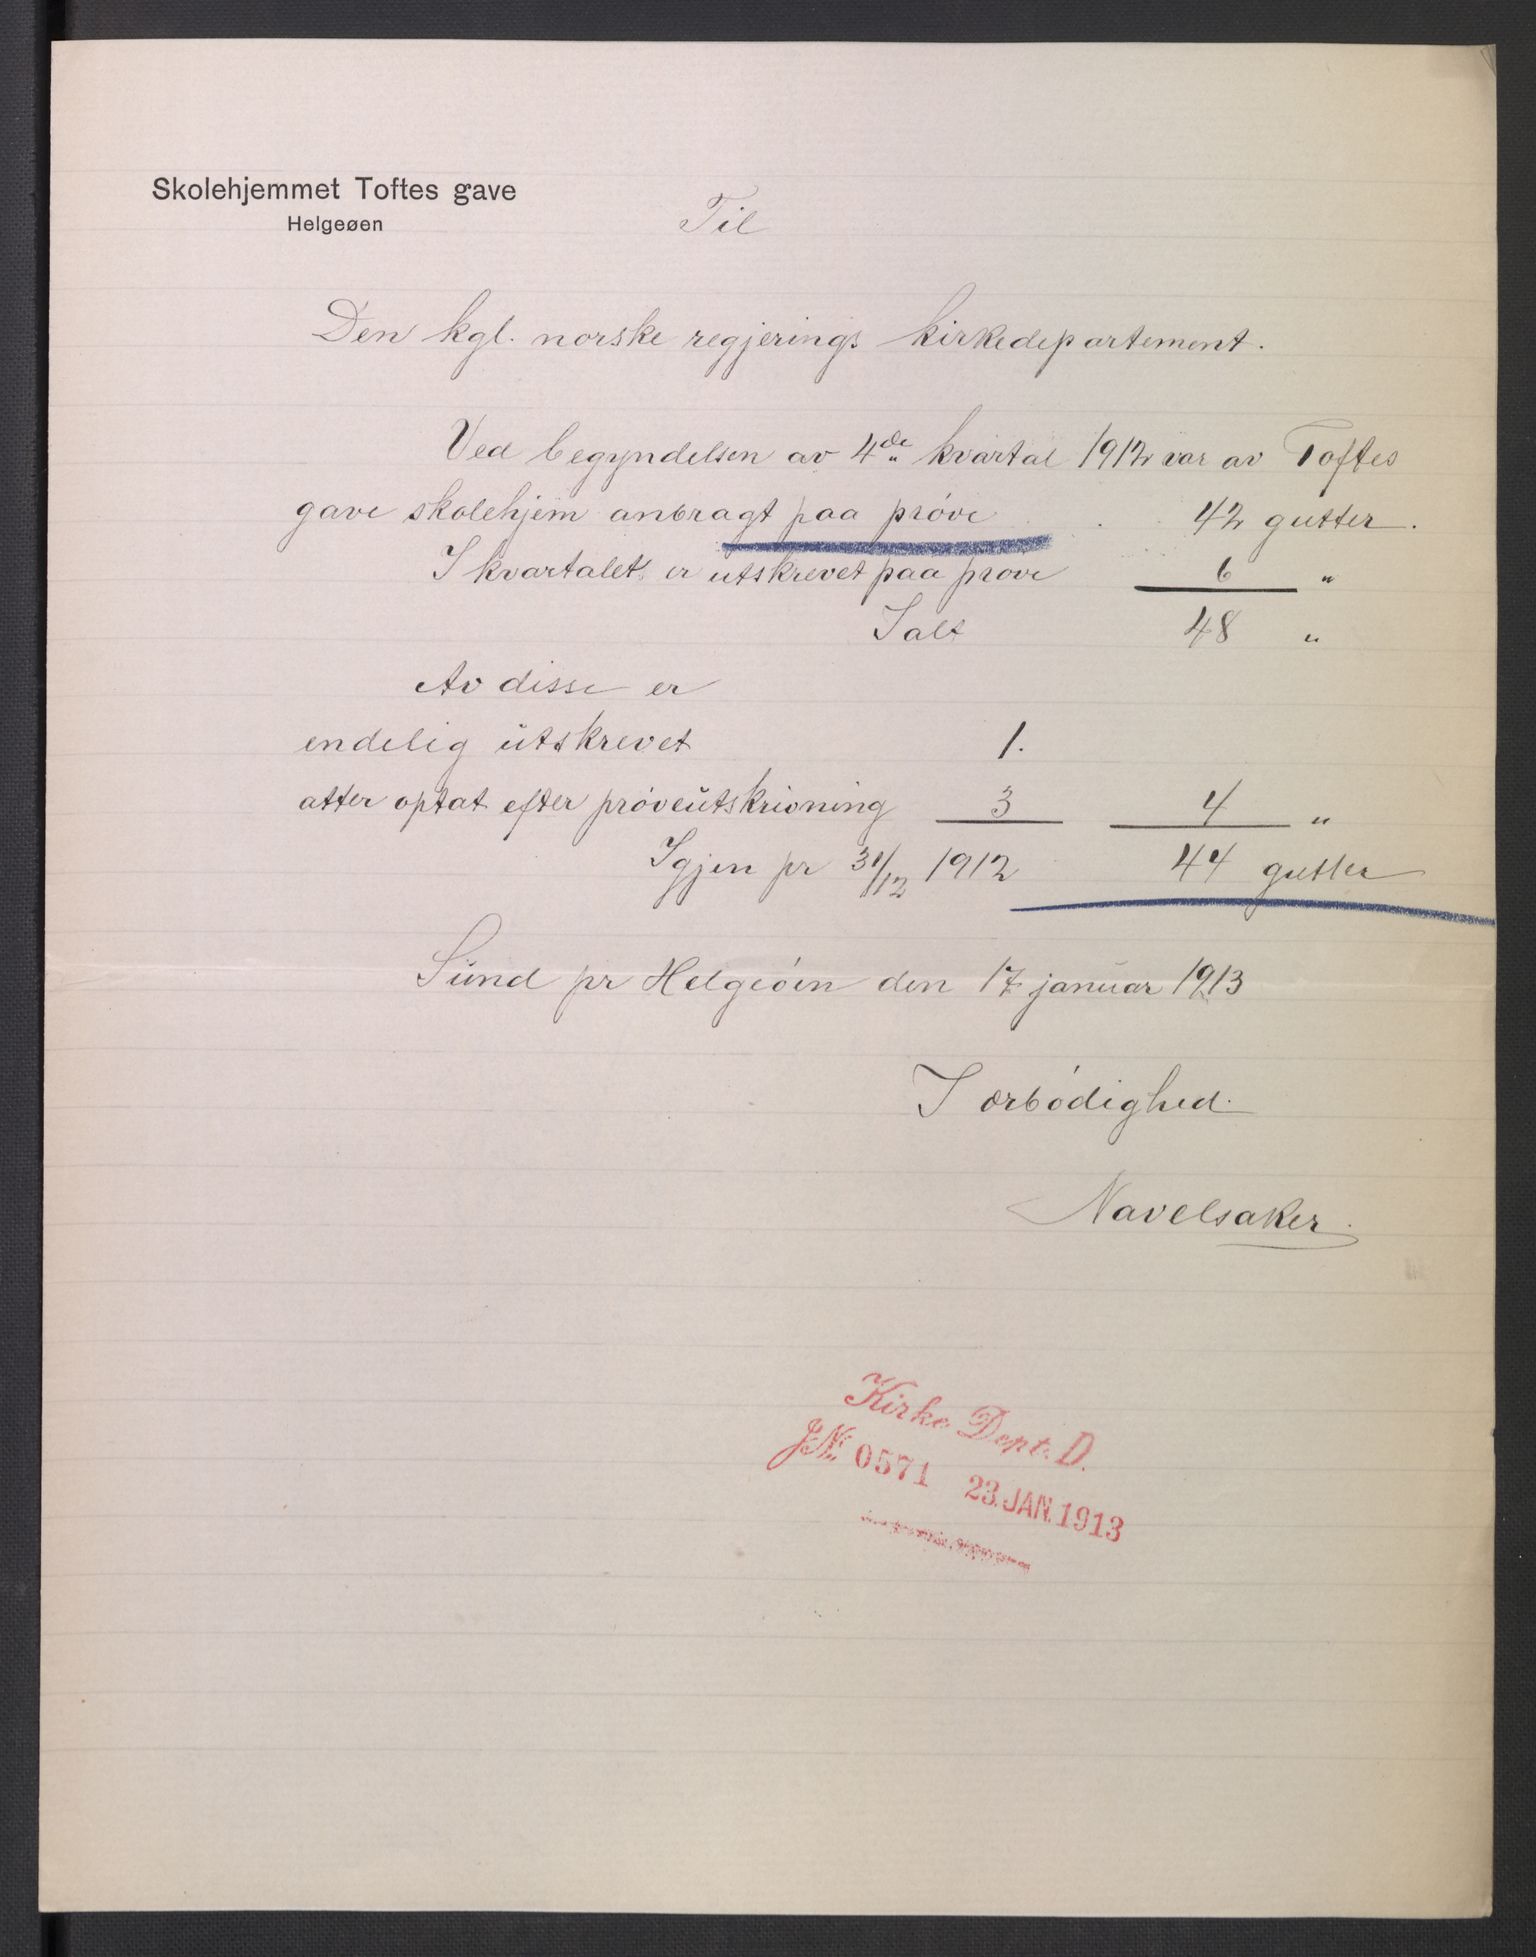 Skolehjemmet Toftes gave
Helgeøen
Til
Den kgl. norske regjerings kirkedepartement.
Ved begyndelsen av 4de kvartal 1912 var av Toftes
gave skolehjem anbragt paa prøve 42 gutter.
I kvartalet er utskrevet paa prøve 6 "
Ialt 48 "
Av disse er
endelig utskrevet 1.
atter optat efter prøveutskrivning 3 4 "
Igjen pr 31/12 1912 44 gutter
Sund pr Helgeøen den 17 januar 1913
I ærbødighed.
Navelsaker.
Kirke Dept. D.
J№ 0571 23. JAN. 1913